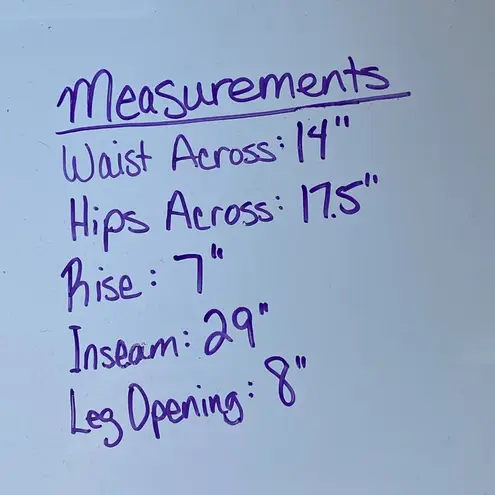 Measurements
Waist Across: 14"
Hips Across: 17.5"
Rise: 7"
Inseam: 29"
Leg Opening: 8"